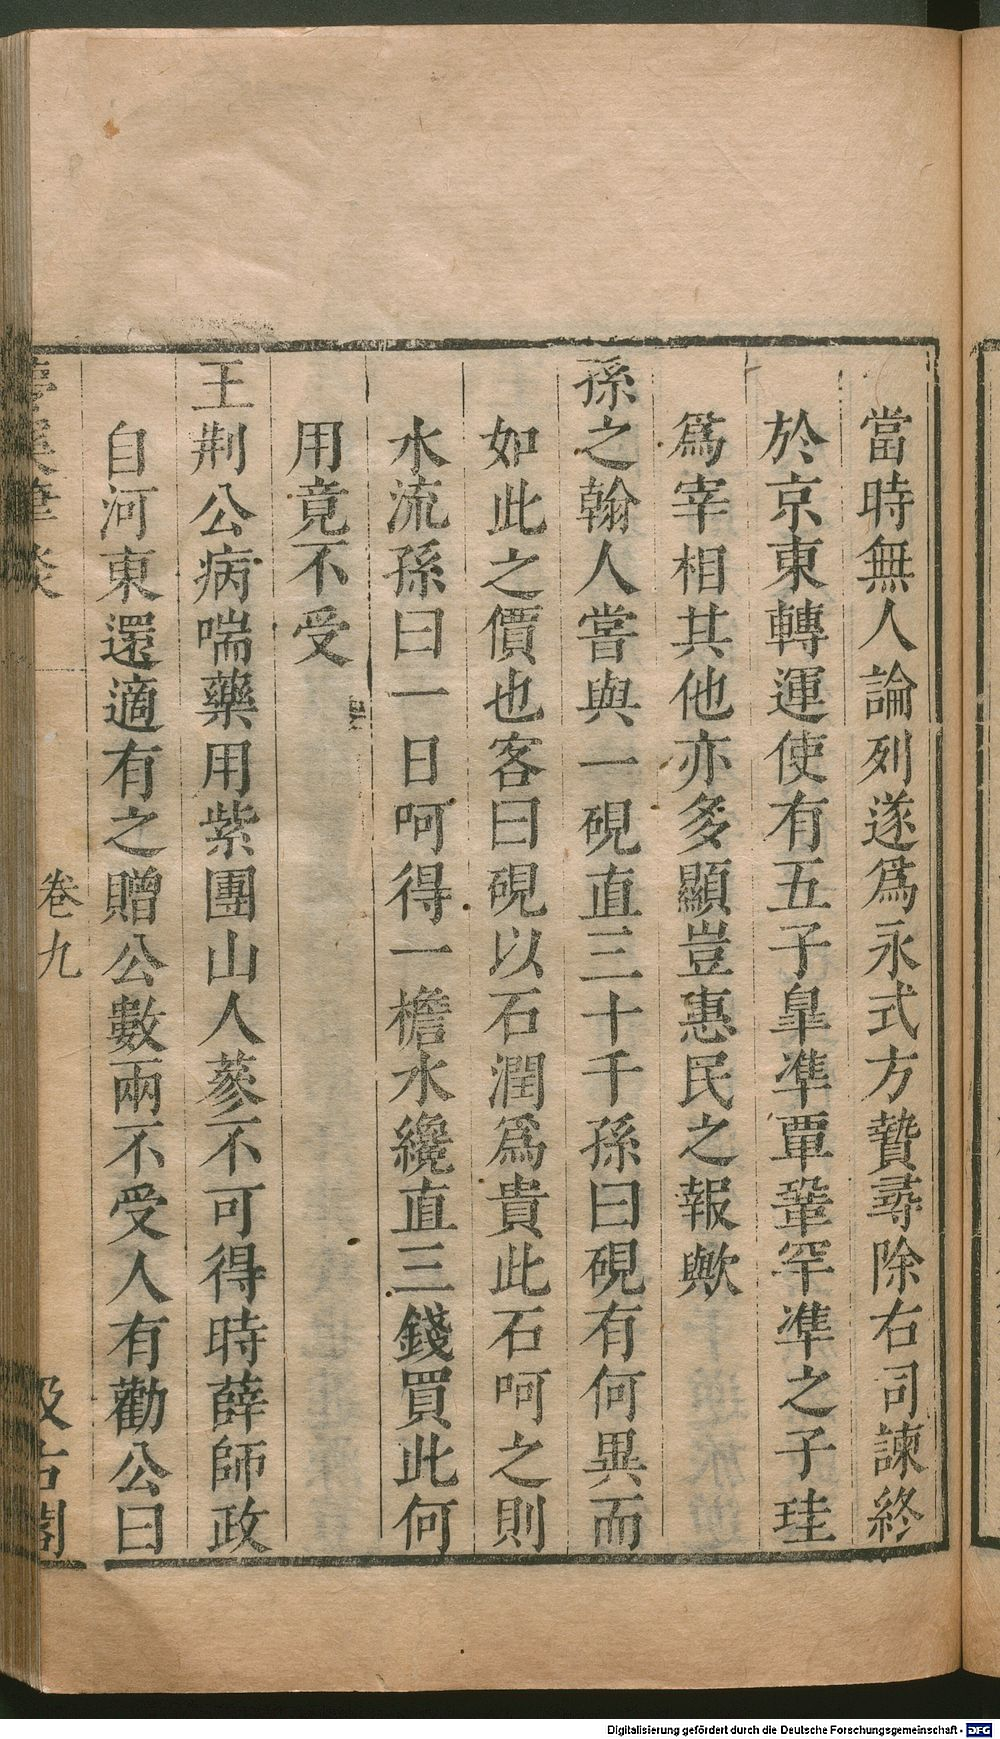 當時無人論列遂爲永式方贄尋除右司諫終
於京東轉運使有五子臯凖覃鞏罕凖之子珪
爲宰相其他亦多顯豈惠民之報歟
孫之翰人嘗與一硯直三十千孫曰硯有何異而
如此之價也客曰硯以石潤爲貴此石呵之則
水流孫曰一日呵得一檐水纔直三錢買此何
用竟不受
王荆公病喘藥用紫團山人蔘不可得時薛師政
自河東還適有之贈公數兩不受人有勸公曰
夢溪筆談 卷九 汲古閣
Digitalisierung gefördert durch die Deutsche Forschungsgemeinschaft - DFG